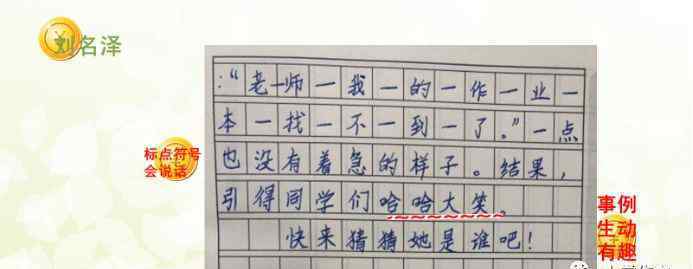 刘名泽
：“老—师—我—的—作—业—
本—找—不—到—了。”一点
也没有着急的样子。结果，
引得同学们哈哈大笑。
快来猜猜她是谁吧！
标点符号
会说话
事例
生动
有趣